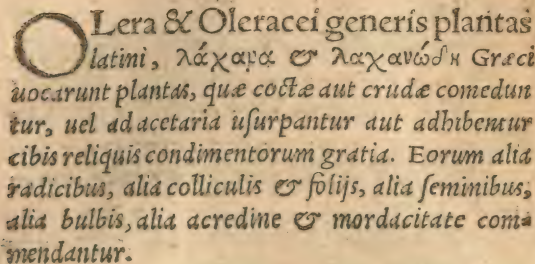 OLera & Oleracei generis plantas
latini, λάχανα & λαχανώδη Græci
uocarunt plantas, quæ coctæ aut crudæ comedun
tur, uel ad acetaria uſurpantur aut adhibentur
cibis reliquis condimentorum gratia. Eorum alia
radicibus, alia colliculis & folijs, alia ſeminibus,
alia bulbis, alia acredine & mordacitate com-
mendantur.